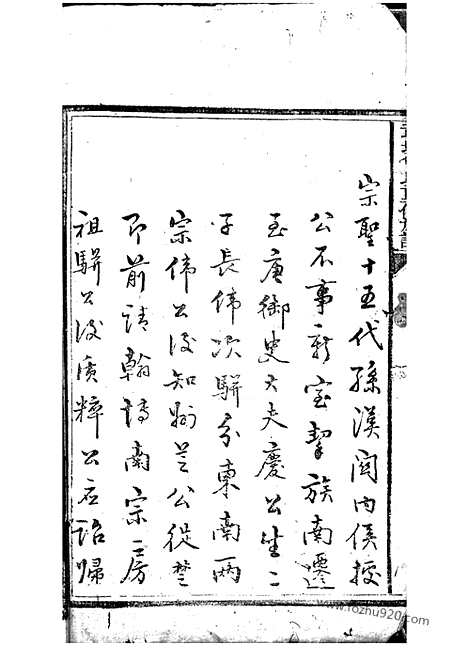 宗聖十五代孫漢關內侯授
公不事新室挈族南遷
至唐御史大夫慶公生二
子長偉次駢分東南兩
宗偉公後知州芝公從楚
即前請翰博南宗二房
祖駢公後質粹公应詔歸
www.fozhu920.com